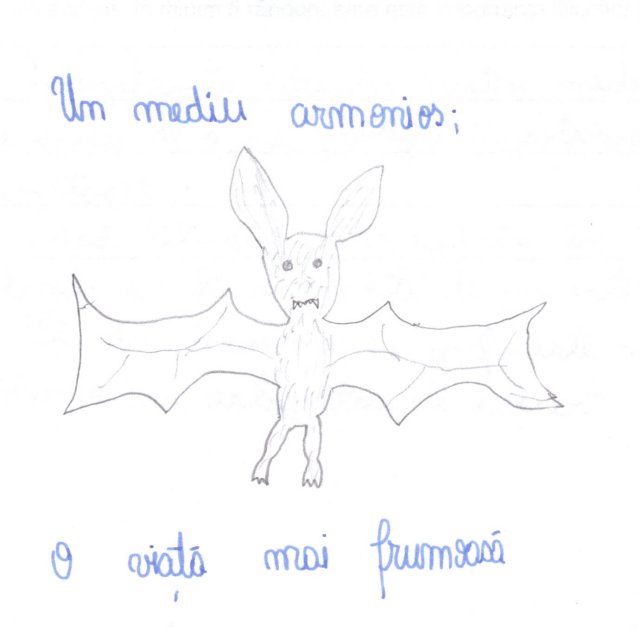 Un mediu armonios;
O viață mai frumoasă